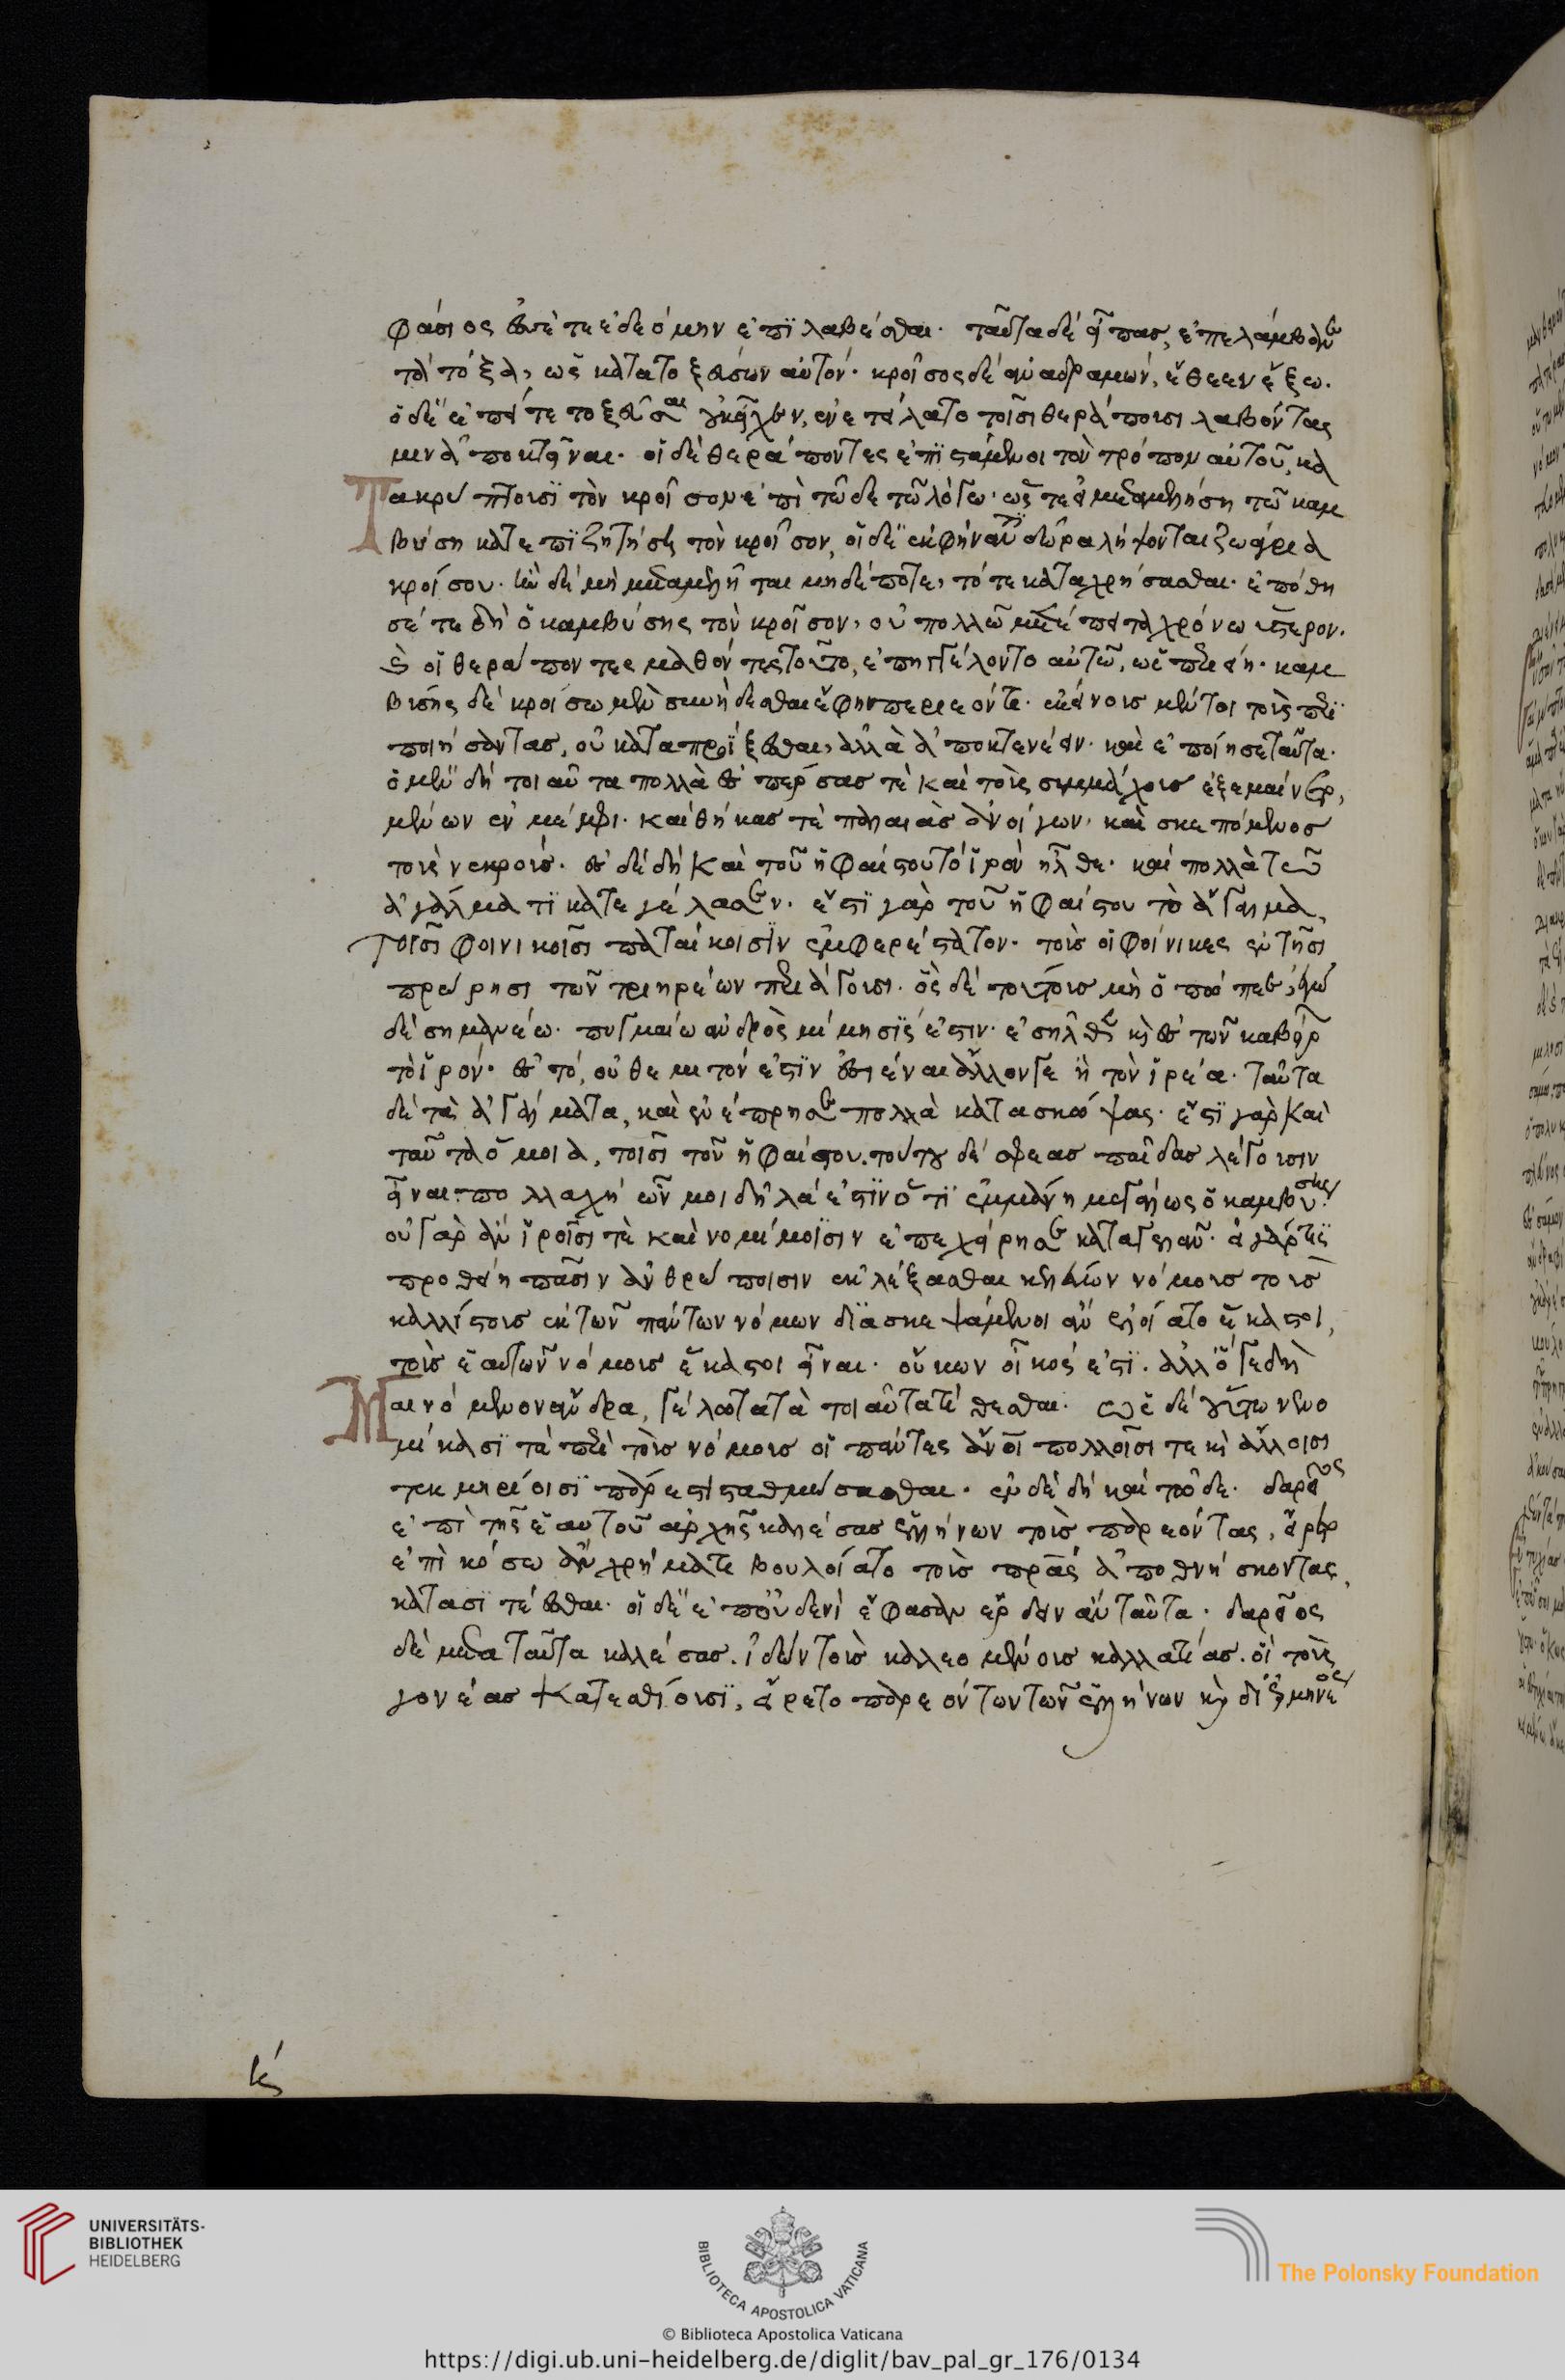 φάσιος οὔτέ τεε ἐδεόμην ἐπιλαβέσθαι. ταῦτα δὲ εἴπας, ἐπελάμβανε
τὰ τόξα, ὡς κατατοξεύσων αὐτόν. κροῖσος δὲ ἀναδραμὼν, ἔθεεν ἔξω.
ὁ δὲ ἐπεί τε τοξεῦσαι οὐκ εἶχεν, ἐνετείλατο τοῖσι θεράπουσι λαβόντας
μιν ἀποκτεῖναι. οἱ δὲ θεράποντες ἐπιστάμενοι τὸν τρόπον αὐτοῦ, κα
Τακρύπτουσι τὸν κροῖσον ἐπὶ τῶδε τῶ λόγω. ὥστε εἰ μεταμελήση τῶ καμ
βύση καὶ ἐπιζητήσει τὸν κροῖσον, οἱ δὲ ἐκφήναντες δῶρα λήψονται ζωάγρια
κροίσου. ἢν δὲ μὴ μεταμελῆται μηδέποτε, τότε καταχρήσασθαι. ἐπόθη
σέ τε δὴ ὁ καμβύσης τὸν κροῖσον, οὐ πολλῶ μετέπειτα χρόνω ὕστερον.
καὶ οἱ θεράποντες μαθόντες τοῦτο, ἐπηγγέλοντο αὐτῶ, ὡς περιείη. καμ
βύσης δὲ κροίσω μὲν συνήδεσθαι ἔφη περιεόντι. ἐκείνοις μέντοι τοὺς περι
ποιήσαντας, οὐ καταπροΐξεσθαι, ἀλλὰ ἀποκτενέειν. καὶ ἐποίησε ταῦτα.
ὁ μὲν δὴ τοιαῦτα πολλὰ ἐς πέρσας τὲ καὶ τοὺς συμμάχους ἐξεμαίνετο,
μένων ἐν μέμφι. καὶ θήκας τὲ παλαιὰς ἀνοίγων, καὶ σκεπόμενος
τοὺς νεκρούς. ἐς δὲ δὴ καὶ τοῦ ἡφαίστου τὸ ἱρὸν ἦλθε. καὶ πολλὰ τῶ
ἀγάλματι κατεγέλασεν. ἔστι γὰρ τοῦ ἡφαίστου τὸ ἄγαλμα,
τοῖσι φοινικοῖσι παταίκοισιν ἐμφερέστατον. τοὺς οἱ φοίνικες ἐν τῆσι
πρώρησι τῶν τριηρέων περιάγουσι. ὃς δὲ τούτους μὴ ὄπωπε, ἐγὼ
δὲ σημανέω. πυγμαίω ἀνδρὸς μίμησίς ἐστιν. ἐσῆλθε δὲ καὶ ἐς τῶν καβείρων
τὸ ἱρόν. ἐς τό, οὐ θεμιτόν ἐστιν ἐσιέναι ἄλλον γε ἢ τὸν ἱρέα. ταῦτα
δὲ τὰ ἀγάλματα, καὶ ἐνέπρησε πολλὰ κατασκώψας. ἔστι γὰρ καὶ
ταῦτα ὅμοια, τοῖσι τοῦ ἡφαίστου. τούτου δέ σφεας παῖδας λέγουσιν
εἶναι. πολλαχῆ ὦν μοι δῆλά ἐστιν ὅτι ἐμμάνη μεγάλως ὁ καμβύσης.
οὐ γὰρ ἂν ἱροῖσι τὲ καὶ νομίμοισιν ἐπεχείρησε καταγελᾶν. εἰ γάρ τις
προθείη πᾶσιν ἀνθρώποισιν ἐκλέξασθαι κελεύων νόμους τοὺς
καλλίστους ἐκ τῶν πάντων νόμων διασκεψάμενοι ἂν ἑλοίατο ἕκαστοι,
τοὺς ἑαυτῶν νόμους ἕκαστοι εἶναι. οὔκων οἶκός ἐστι. ἄλλον γε δὴ
Μαινόμενον ἄνδρα, γέλωτα τὰ τοιαῦτα τίθεσθαι. ὡς δὲ οὕτω νενο
μίκασι τὰ περὶ τοὺς νόμους οἱ πάντες ἄνοι πολλοῖσι τε καὶ ἄλλοισι
τεκμηρίοισι πάρεστι σταθμώσασθαι. ἐν δὲ δὴ καὶ τόδε. δαρεῖος
ἐπὶ τῆς ἑαυτοῦ ἀρχῆς καλέσας ἑλλήνων τοὺς παρεόντας, εἴρετο
ἐπὶ κόσω ἂν χρήματι βουλοίατο τοὺς πρας ἀποθνήσκοντας,
κατασιτέεσθαι. οἱ δὲ ἐπ' οὐδενὶ ἔφασαν ἔρδειν ἂν ταῦτα. δαρεῖος
δὲ μετὰ ταῦτα καλέσας ἰδεῖν τοὺς καλεομένους καλλατίας. οἳ τοὺς
γονέας κατεσθίουσι, εἴρετο παρεόντων τῶν ἑλλήνων καὶ δι' ἑρμηνέος
κς
UNIVERSITÄTS-
BIBLIOTHEK
HEIDELBERG
BIBLIOTECA APOSTOLICA VATICANA
The Polonsky Foundation
© Biblioteca Apostolica Vaticana
https://digi.ub.uni-heidelberg.de/diglit/bav_pal_gr_176/0134